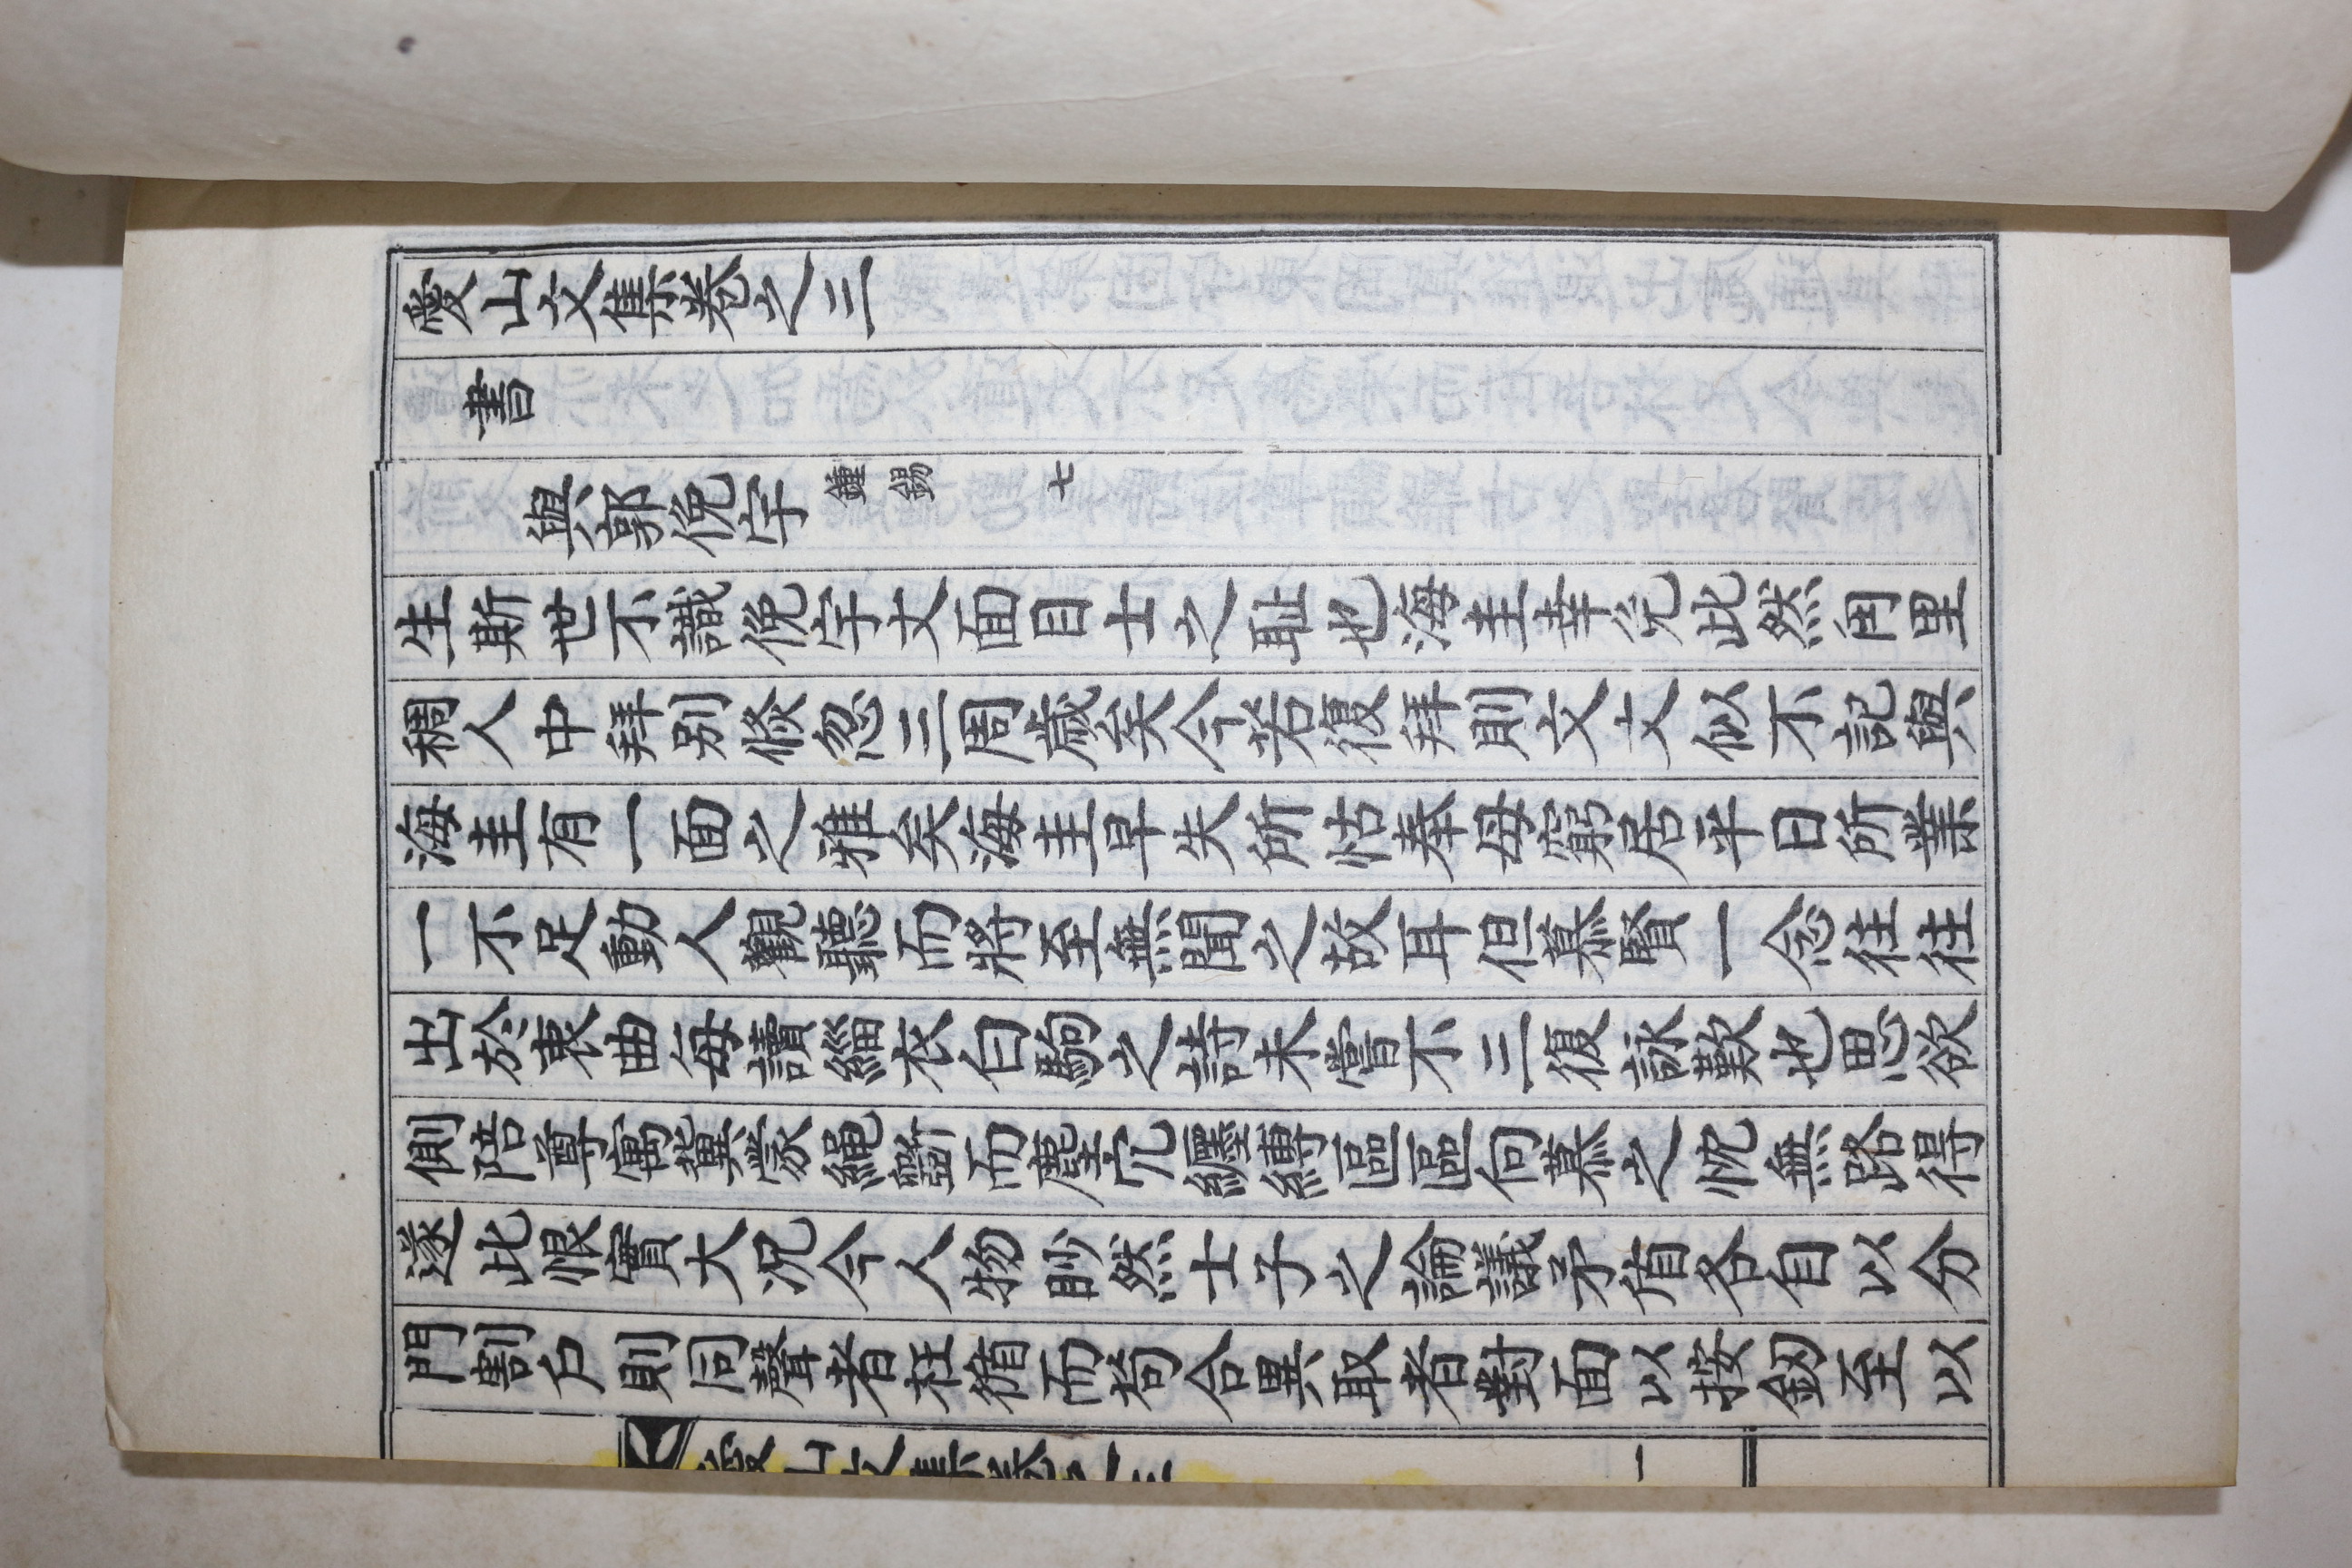 愛山文集卷之三
書
與郭俛宇 鍾錫 七
生斯世不識俛宇丈面目士之耻也海圭幸免此然甪里
稠人中拜別倐忽三周歲矣今若復拜則文丈似不記與
海圭有一面之雅矣海圭早失所怙奉母窮居平日所業
一不足動人觀聽而將至無聞之故耳但慕賢一念往往
出於衷曲每讀緇衣白駒之詩未嘗不三復詠歎也思欲
側陪尊寓冀蒙繩斵而塵宂纏縛區區向慕之忱無路得
遂此恨實大况今人物眇然士子之論議矛盾各自以分
門割戶則同聲者枉循而苟合異取者對面以按釰至以
愛山文集卷之三
一